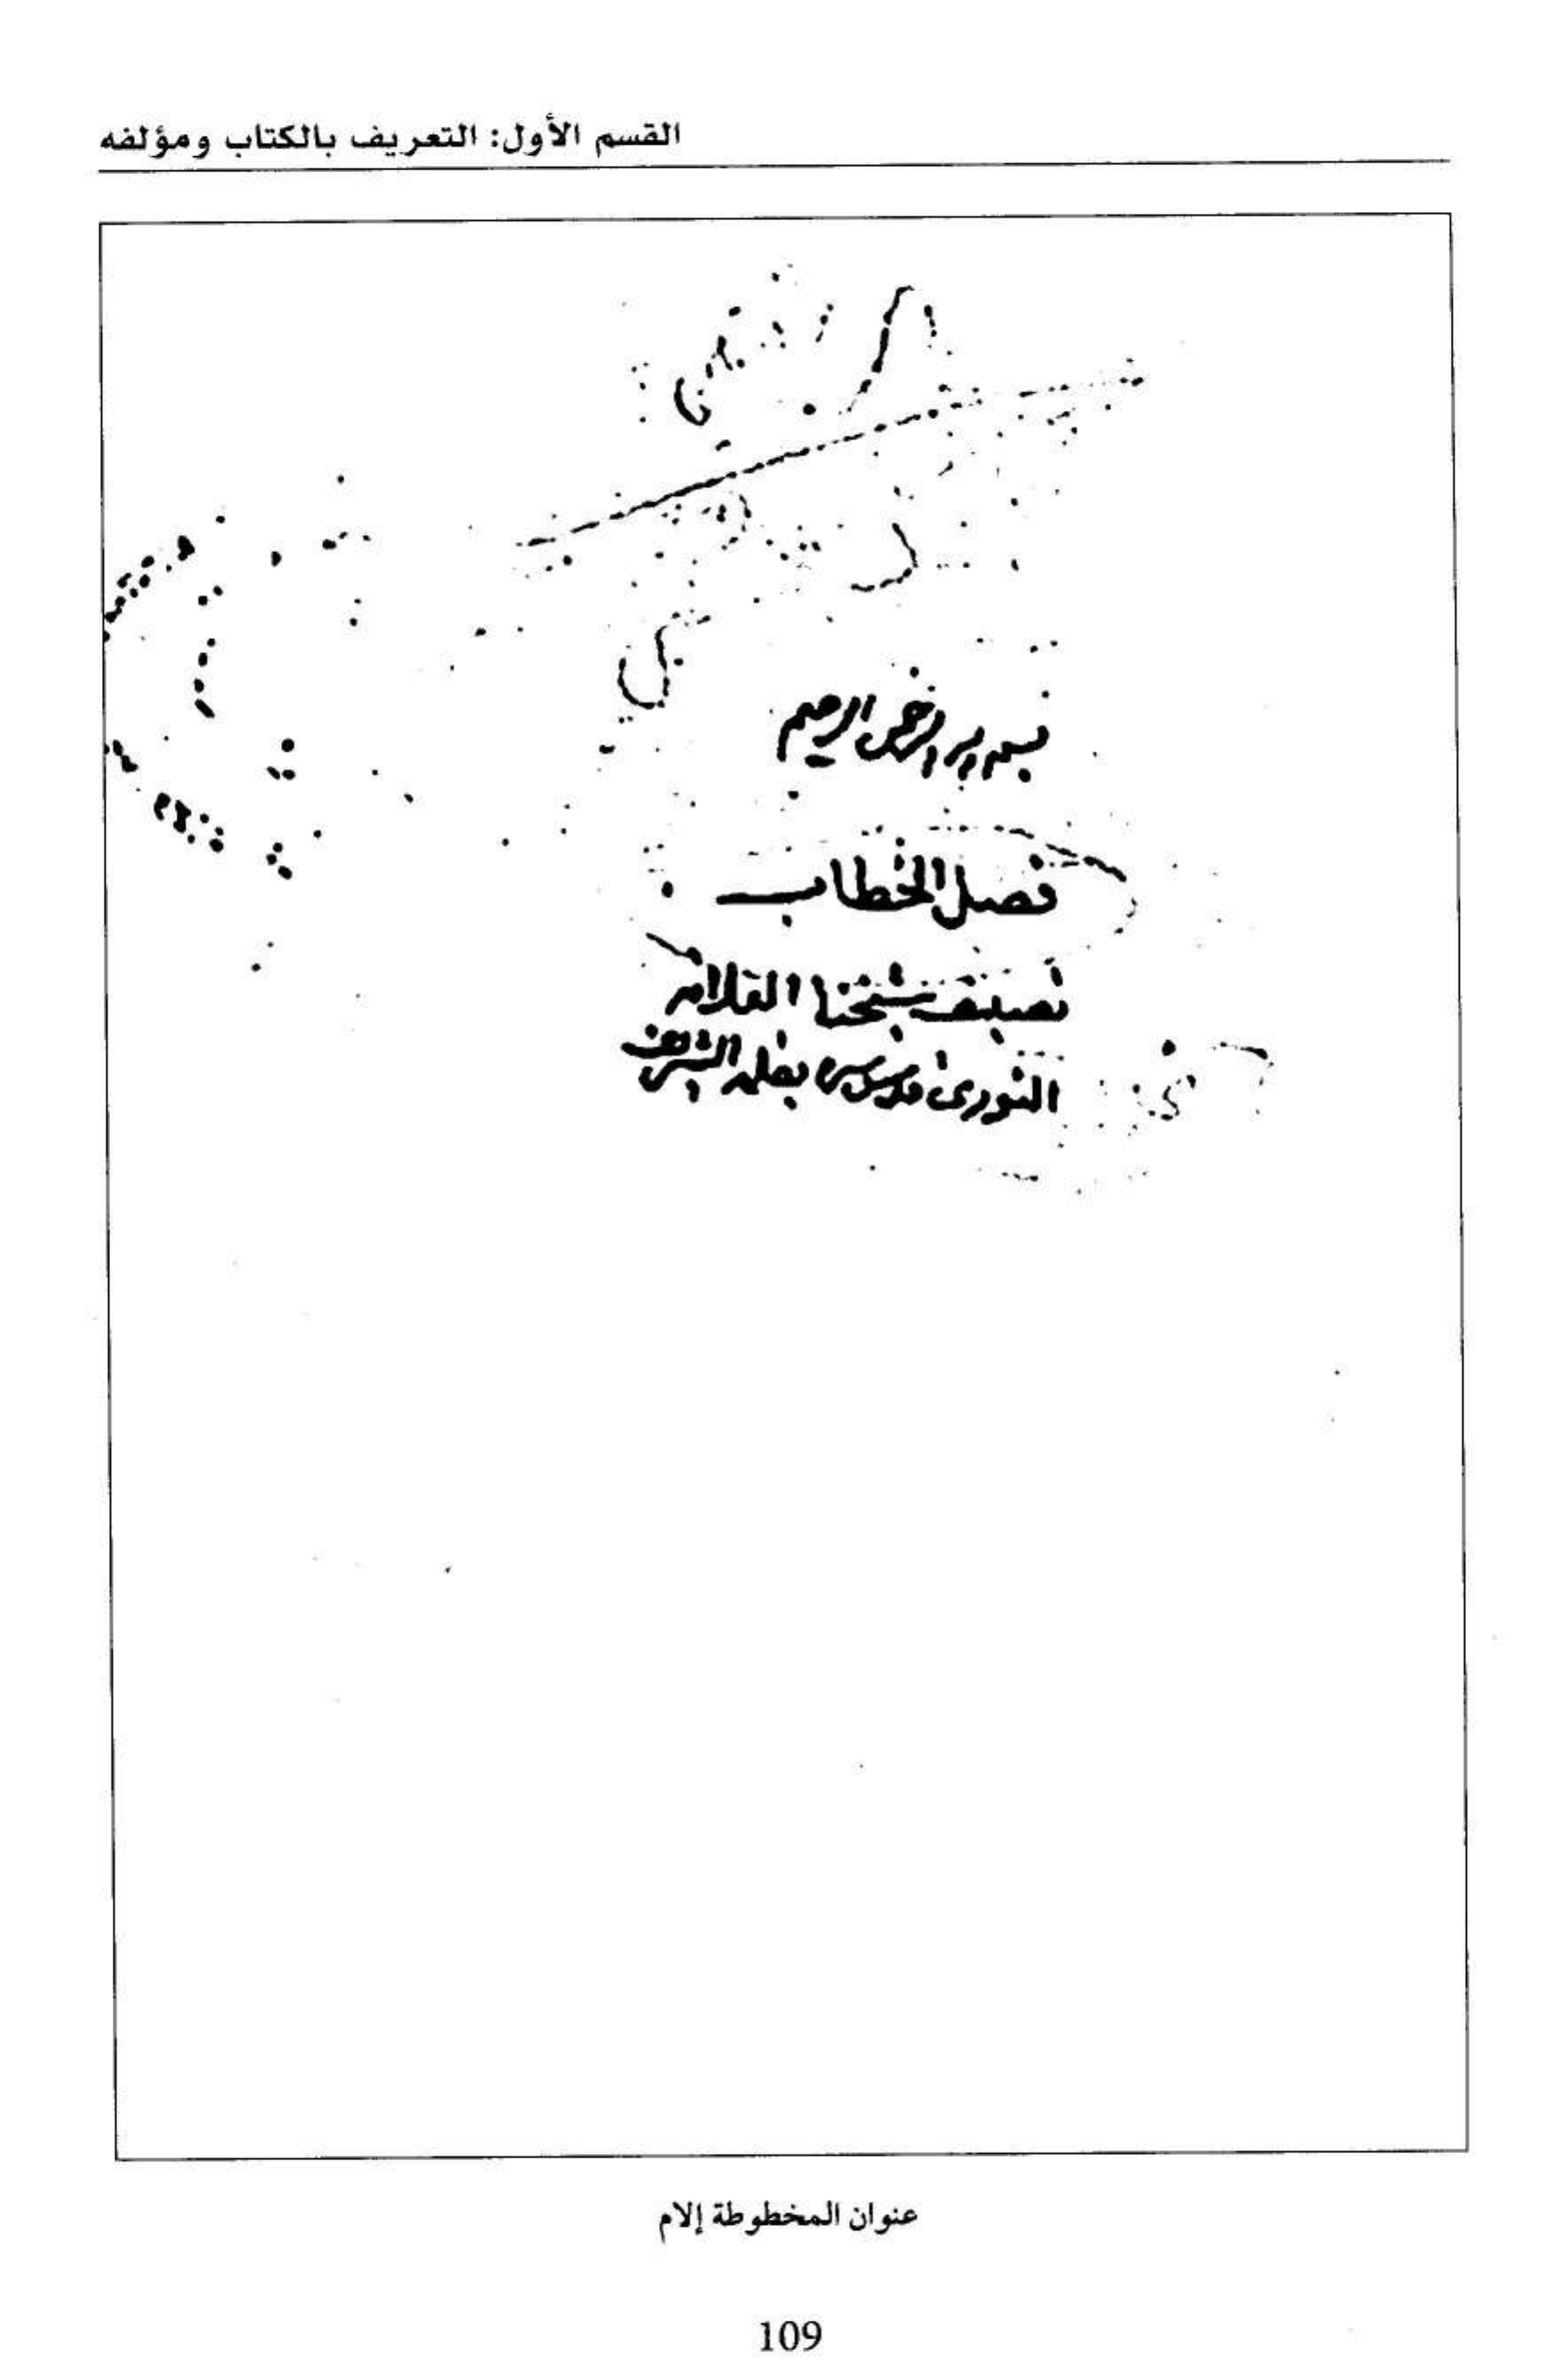 القسم الأول: التعريف بالكتاب ومؤلفه
بسم الله الرحمن الرحيم
فصل الخطاب
تصنيف شيخنا العلامه
النوری قدس سره بخطه الشریف
عنوان المخطوطة إلام
109